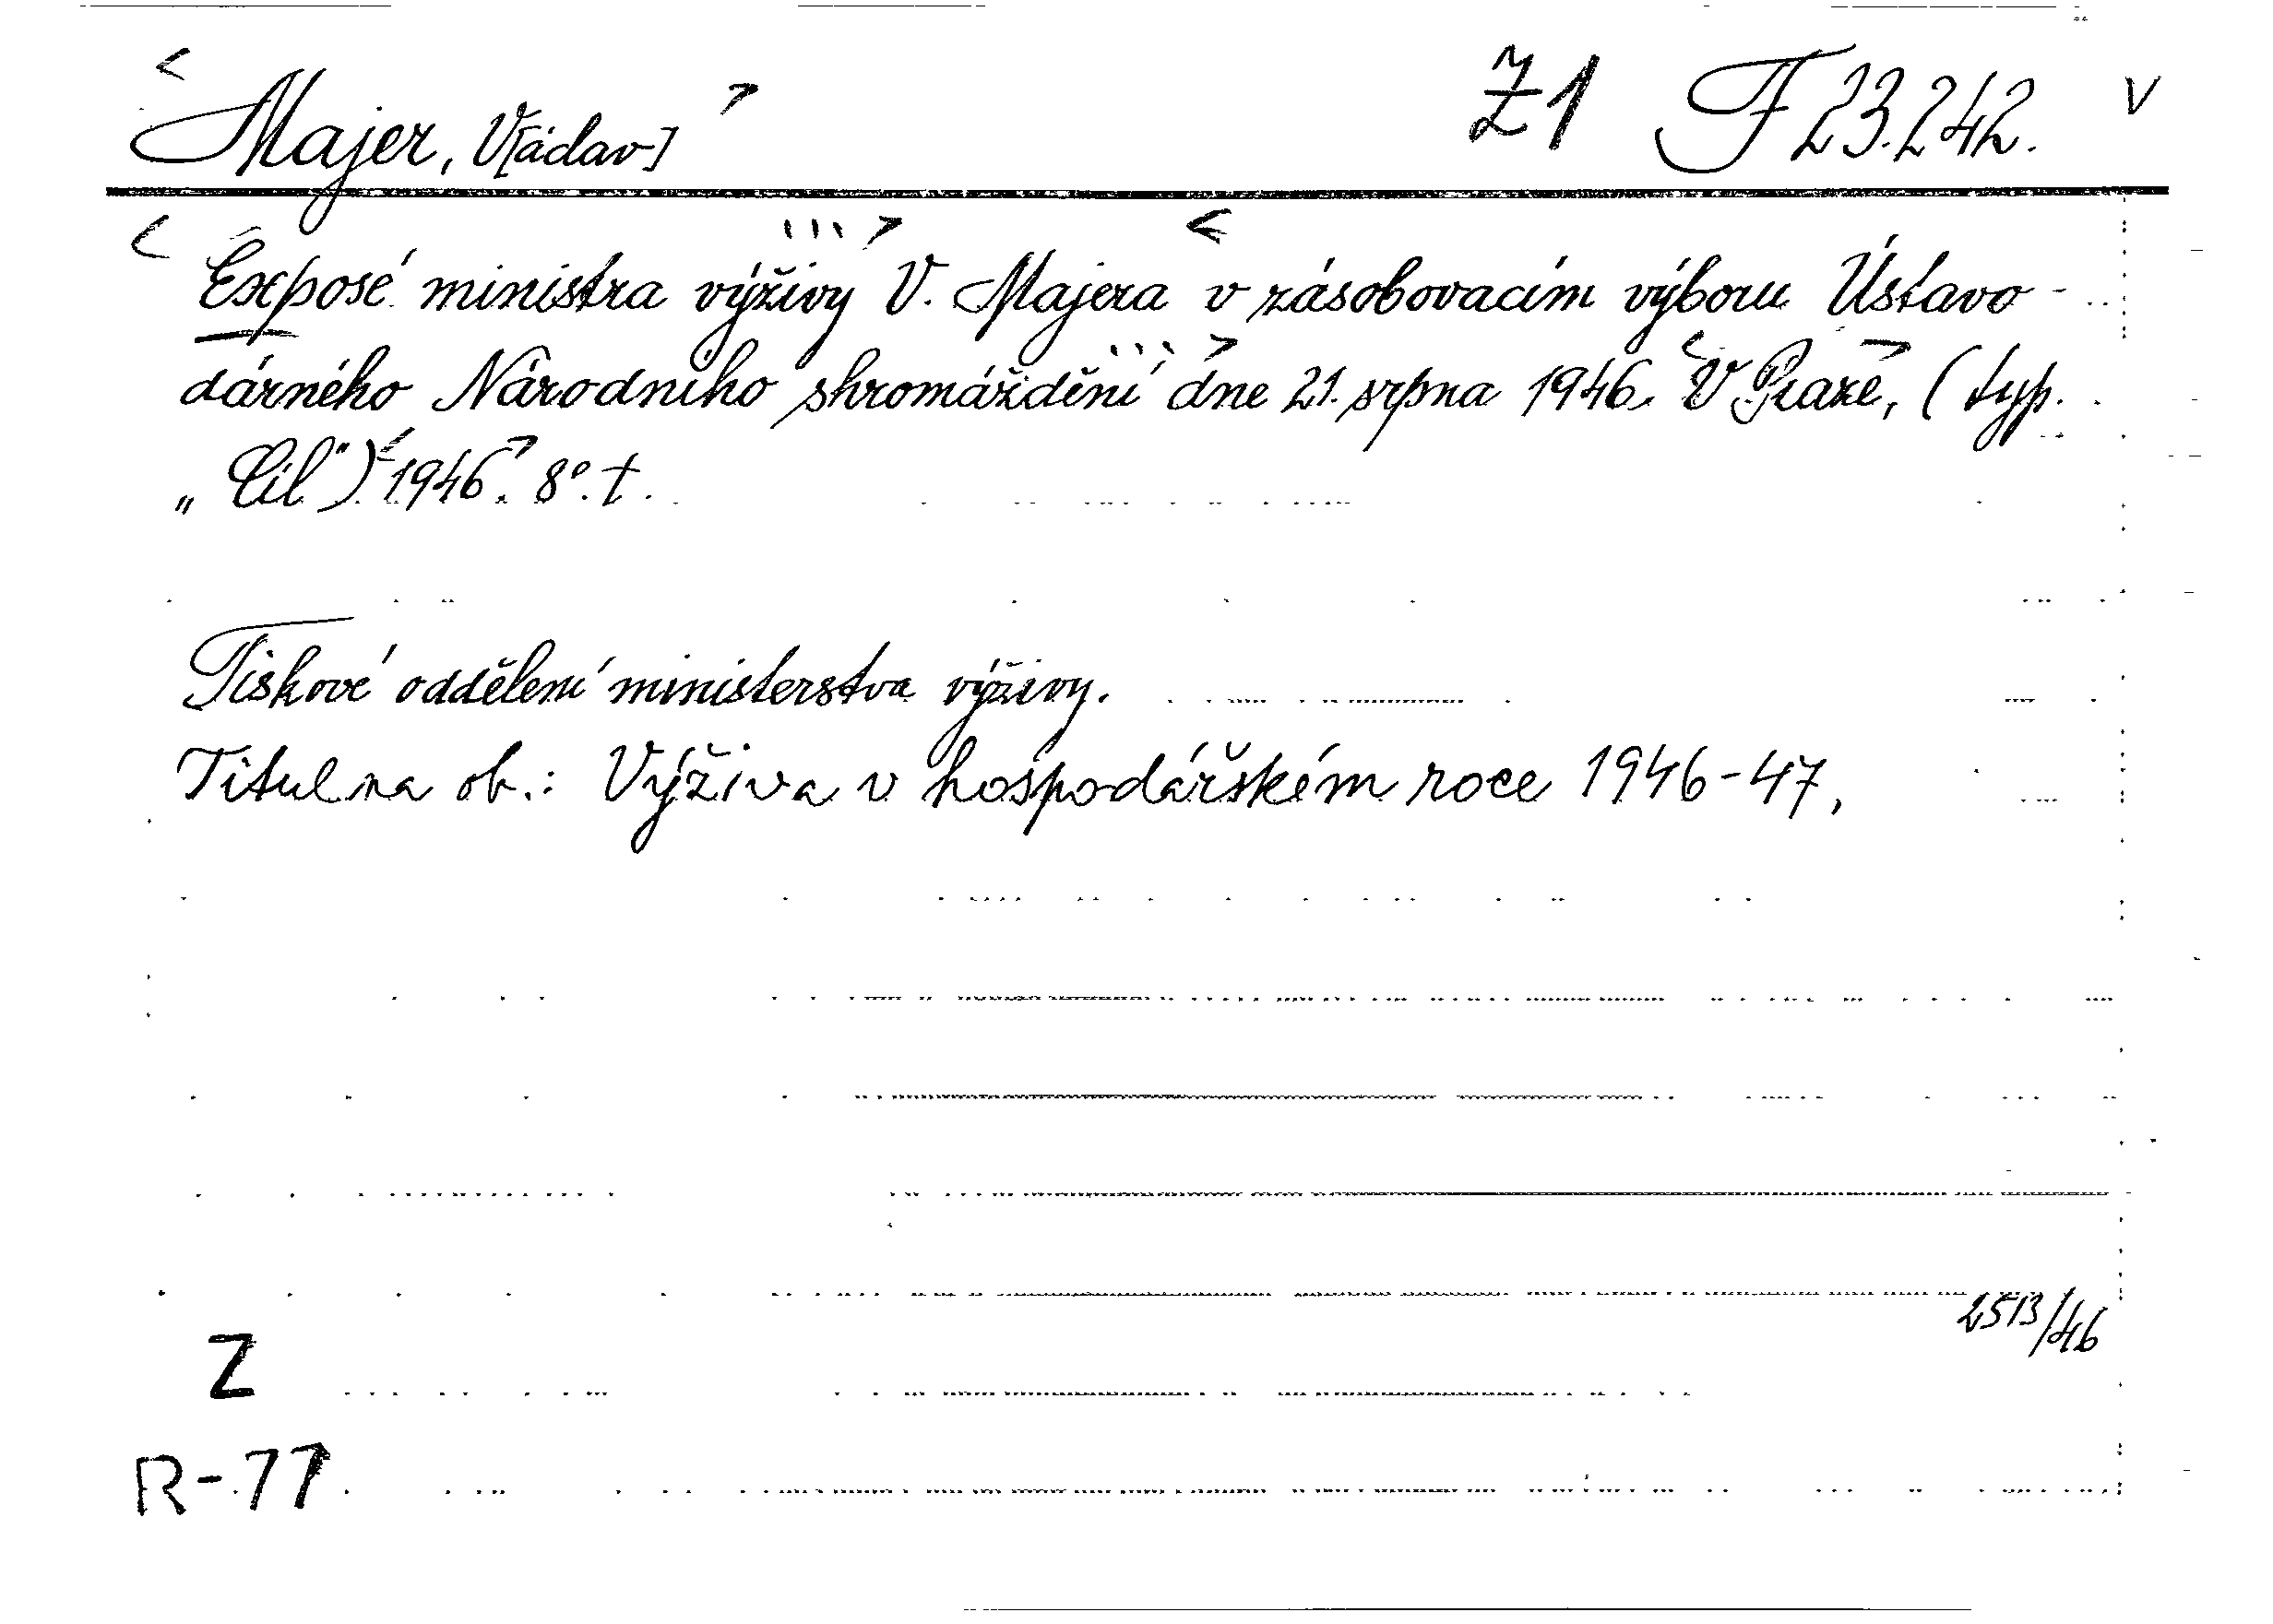 Majer, V[áclav]
Ž1 F 23.242. V
Exposé ministra výživy V. Majera v zásobovacím výboru Ústavo-
dárného Národního shromáždění dne 21. srpna 1946. V Praze, (typ.
„Cíl") 1946. 8°. †.
Tiskové oddělení ministerstva výživy.
Titul na ob.: Výživa v hospodářském roce 1946-47,
2513/46
Z
R-77